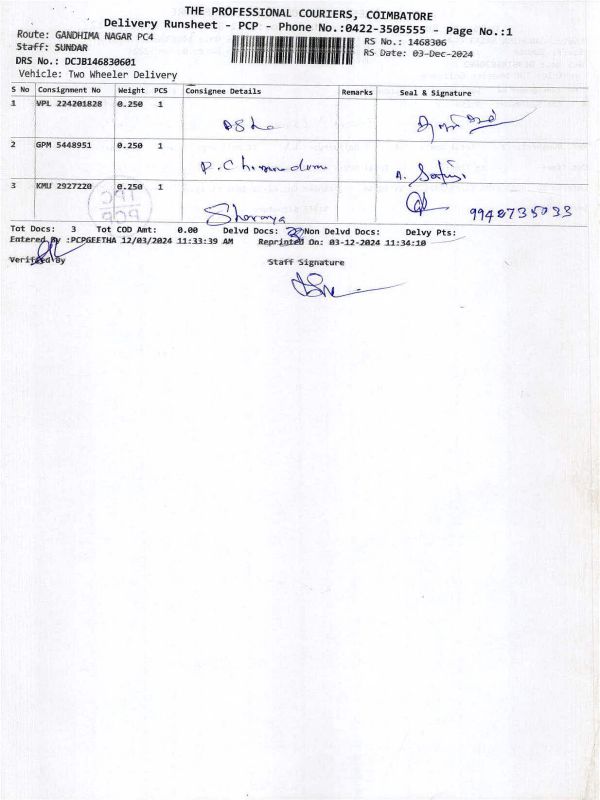 THE PROFESSIONAL COURIERS, COIMBATORE
Delivery Runsheet - PCP - Phone No.:0422-3505555 - Page No.:1
Route: GANDHIMA NAGAR PC4
RS No.: 1468306
Staff: SUNDAR
RS Date: 03-Dec-2024
DRS No.: DCJB146830601
Vehicle: Two Wheeler Delivery
S No Consignment No Weight PCS Consignee Details Remarks Seal & Signature
1 VPL 224201828 0.250 1
2 GPM 5448951 0.250 1
3 KMU 2927220 0.250 1 Sharanya
Tot Docs: 3 Tot COD Amt: 0.00 Delvd Docs: 3 Non Delvd Docs: Delvy Pts:
Entered By :PCPGEETHA 12/03/2024 11:33:39 AM Reprinted On: 03-12-2024 11:34:10
Verified By
Staff Signature